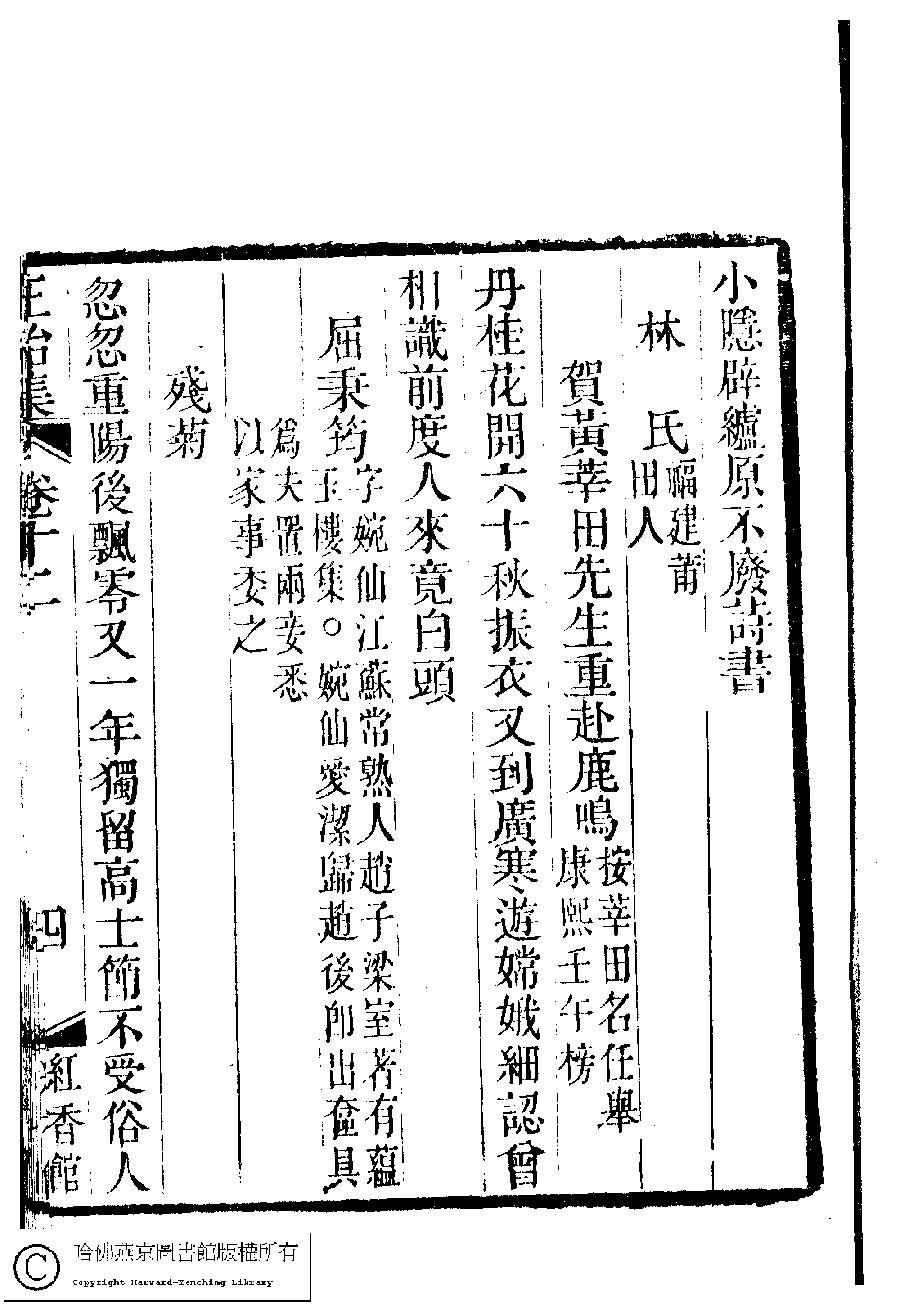 小隱辟纑原不廢詩書
林　氏福建莆田人
賀黃莘田先生重赴鹿鳴按莘田名任舉康熙壬午榜
丹桂花開六十秋振衣又到廣寒遊嫦娥細認曾
相識前度人來竟白頭
屈秉筠字婉仙江蘇常熟人趙子梁室著有蘊玉樓集○婉仙愛潔歸趙後卽出奩具
爲夫置兩妾悉以家事委之
殘菊
忽忽重陽後飄零又一年獨留高士節不受俗人
正始集　卷十二　四　紅香館
哈佛燕京圖書館版權所有
Copyright Harvard-Yenching Library